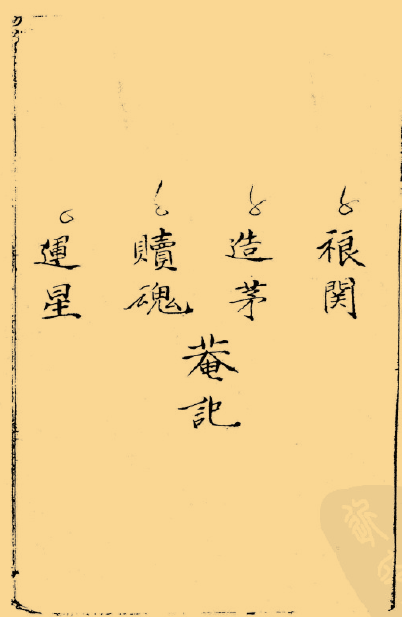 裉関
造茅
贖魂
運星
菴記